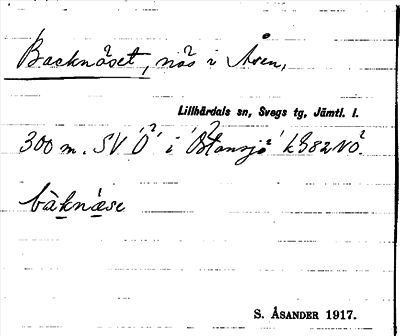 Backnäset, näs i Åsen,
Lillhärdals sn, Svegs tg, Jämtl. l.
300 m. SV "Ö" i "Östansjö" k 382 NÖ.
bàknæse
S. ÅSANDER 1917.